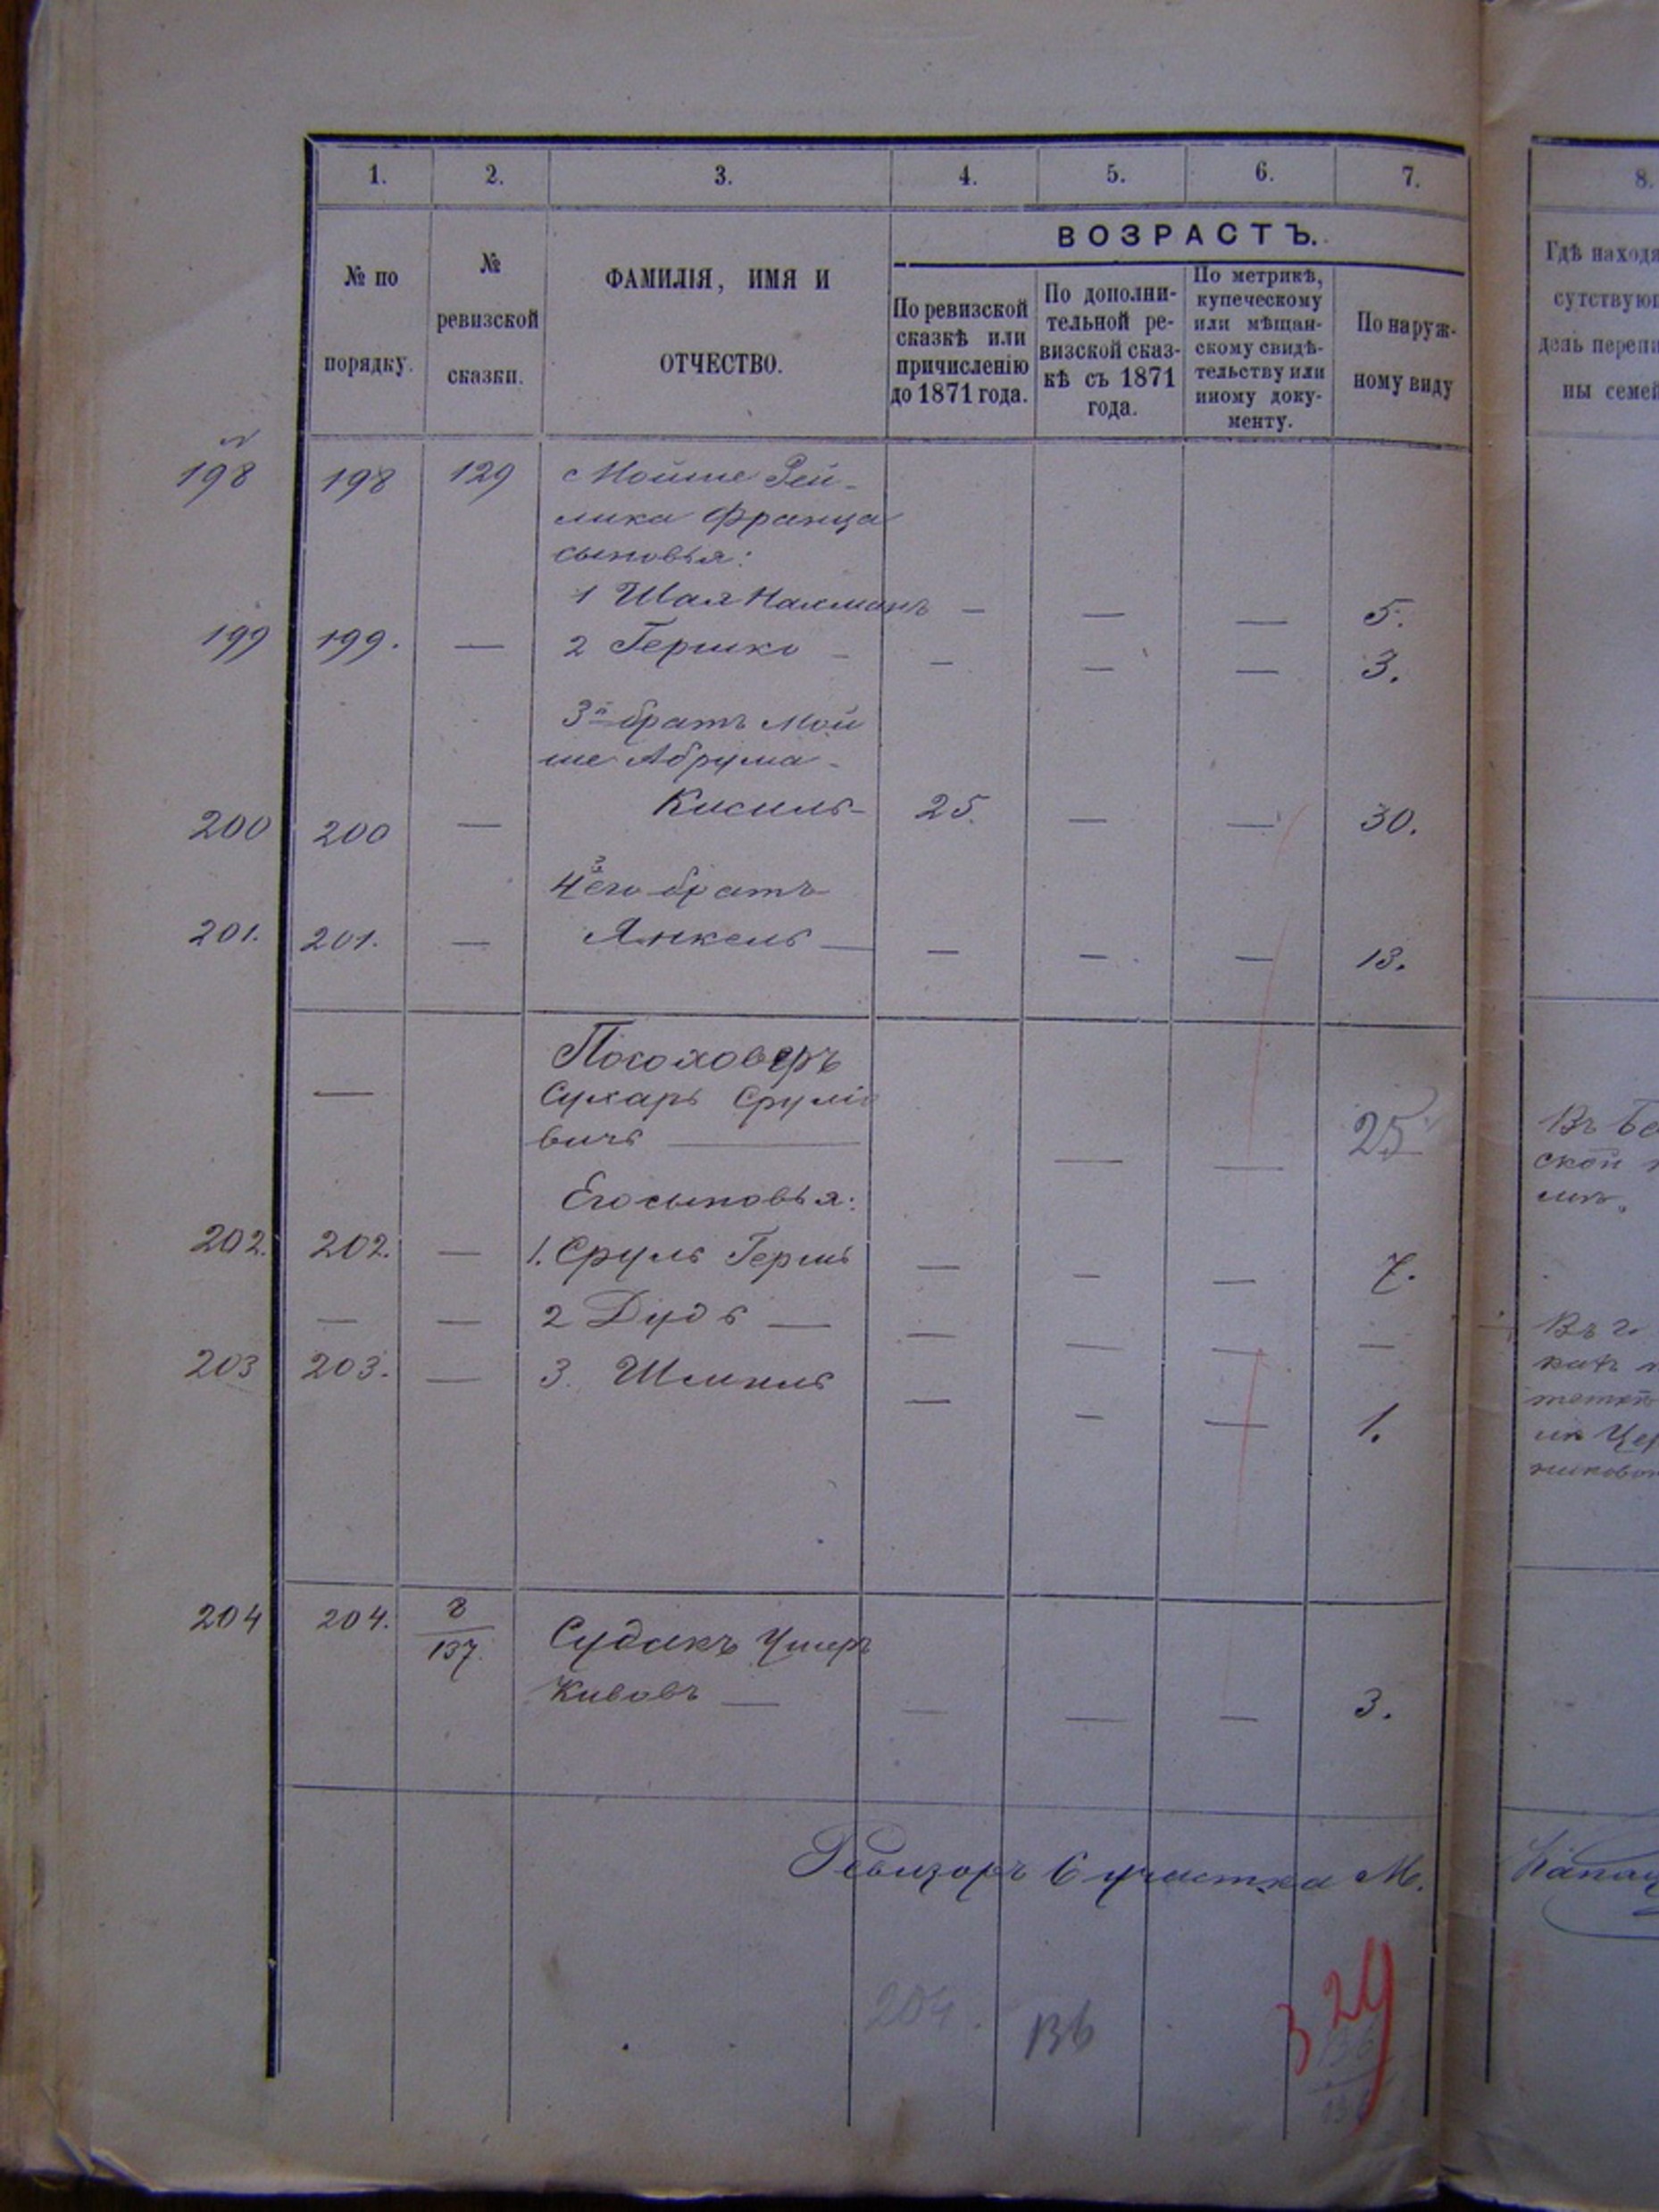 1. 2. 3. 4. 5. 6. 7.
№ по порядку.
№ ревизской сказки.
ФАМИЛІЯ, ИМЯ И ОТЧЕСТВО.
ВОЗРАСТЪ.
По ревизской сказкѣ или причисленію до 1871 года.
По дополнительной ревизской сказкѣ съ 1871 года.
По метрикѣ, купеческому или мѣщанскому свидѣтельству или иному документу.
По наружному виду
8.
Гдѣ находя
сутствующ
день перепи
ны семей
198 198 129 Мойше Рей-
лика Франца
сыновья:
1 Шая Нахманъ — — — 5.
199 199. — 2 Гершко — — — — 3.
3й братъ Мой
ше Абрума-
200 200 — Кисиль- 25. — — 30.
4 его братъ
201. 201. — Янкель — — — — 13.
— Посоховеръ
Сухарь Срулiо
вичь — — — 25
Его сыновья:
202. 202. — 1. Сруль Герш — — — 7.
— — 2 Дудь — — — — —
203 203. — 3. Шмиль — — — 1.
204 204. 8/137. Судакъ Ушеръ
Кивовъ — — — — 3.
Въ Бе
ской
Въ г.
Ревизоръ 6 участка М.
204. 136
329